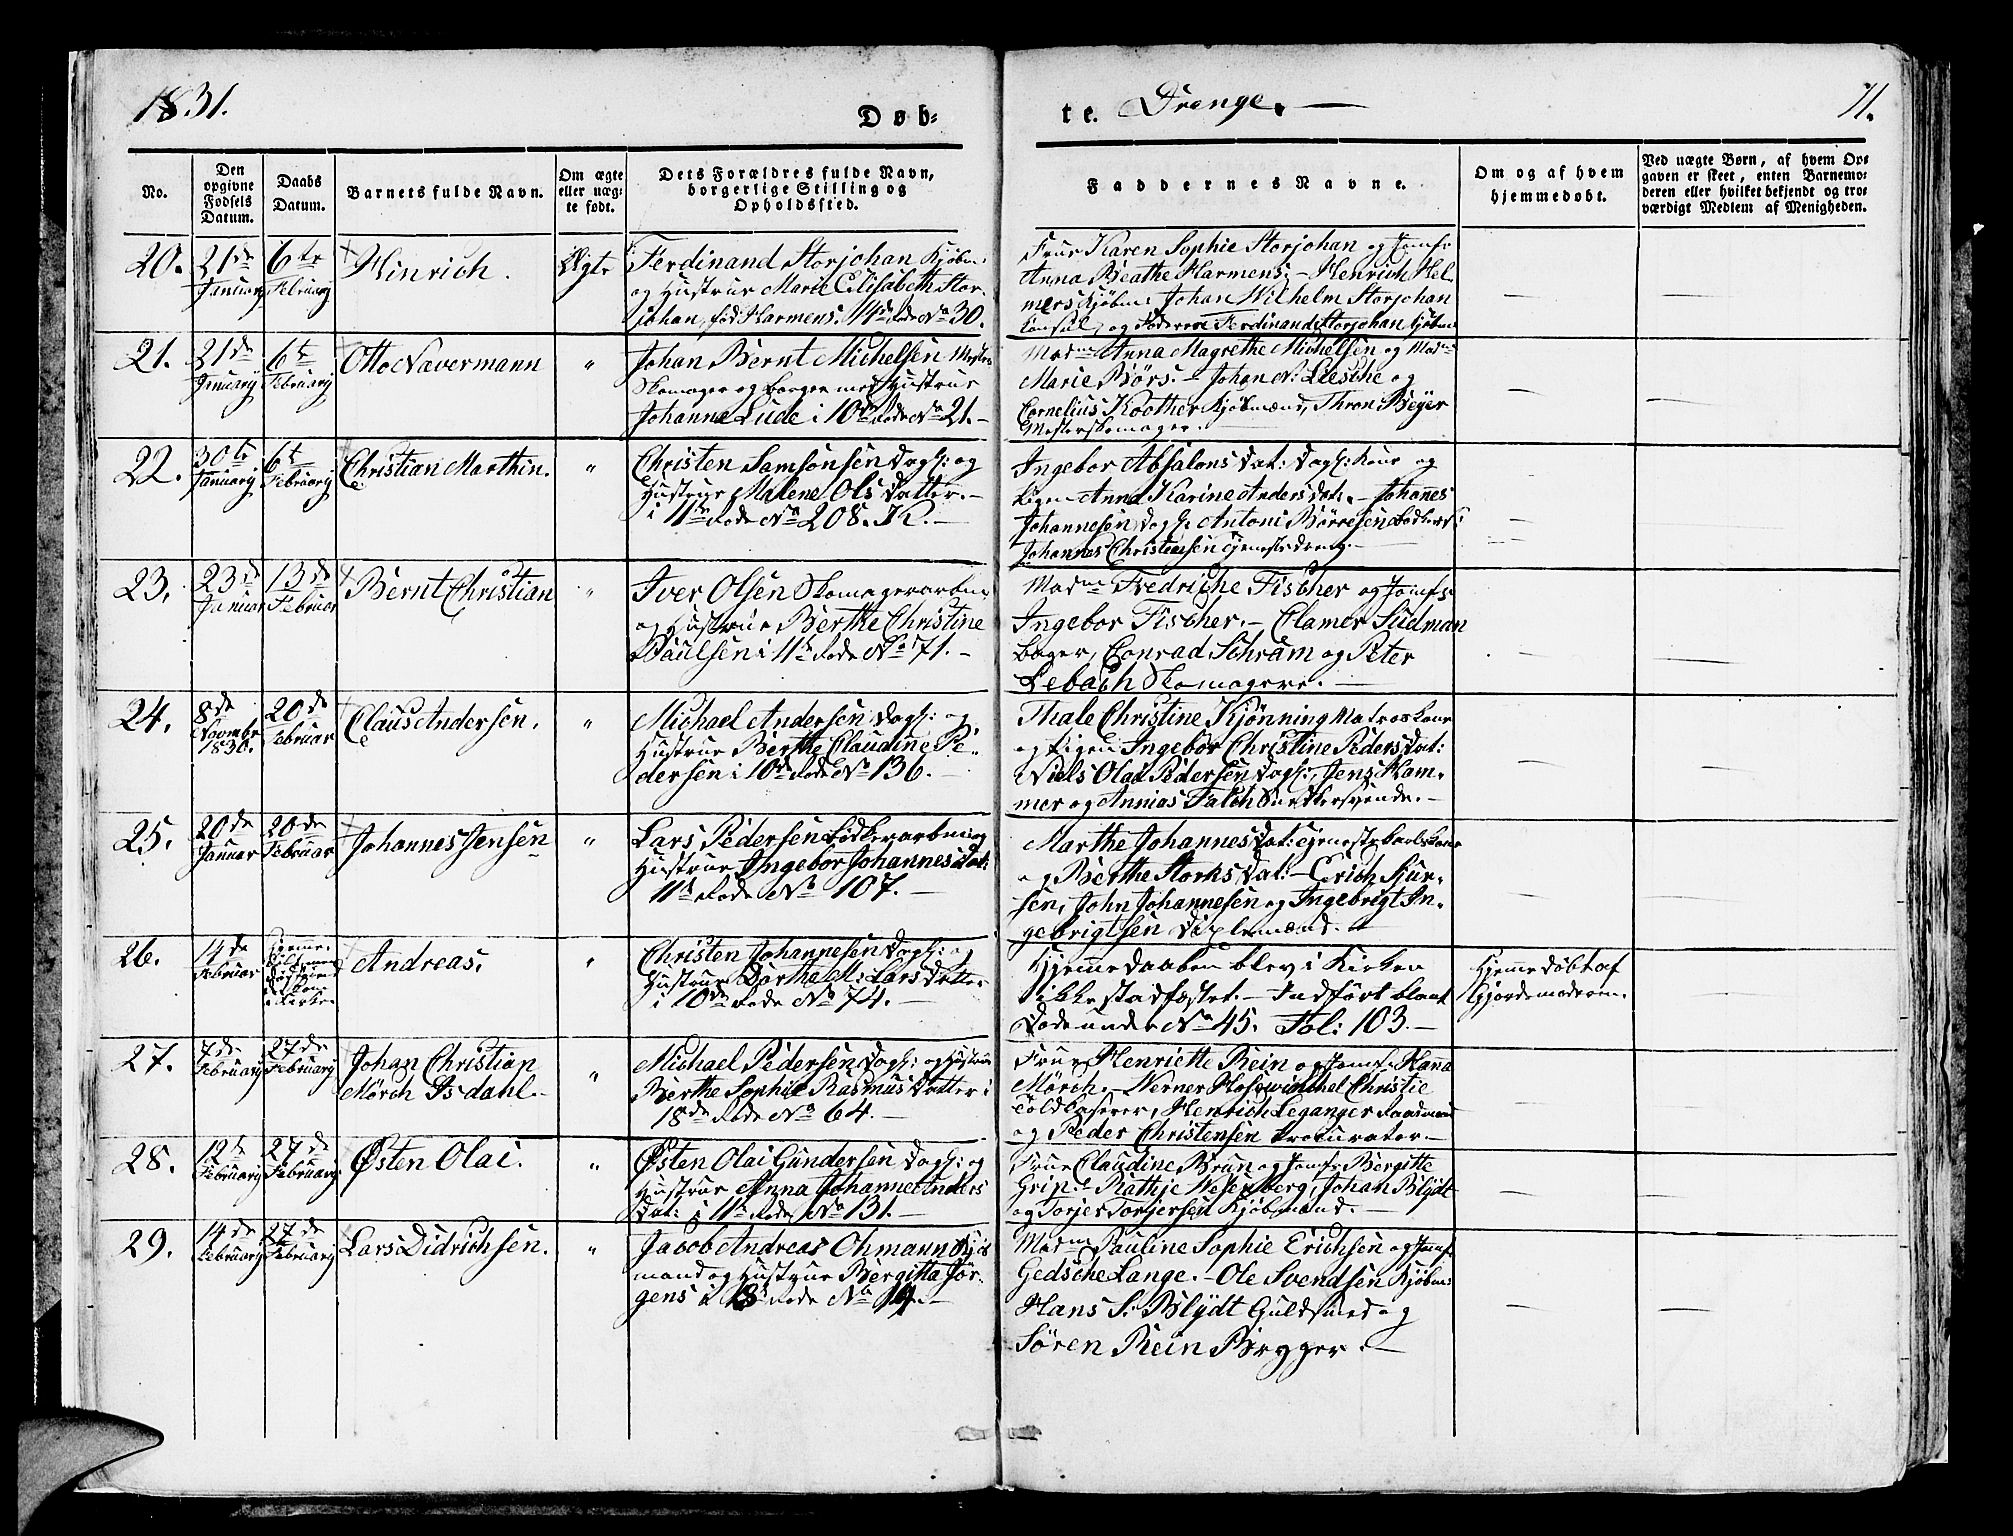 1831.
Døb-
te. Drenge.
71.
No.
Den opgivne Fødsels Datum.
Daabs Datum.
Barnets fulde Navn.
Om ægte eller uægte født.
Dets Forældres fulde Navn, borgerlige Stilling og Opholdssted.
Faddernes Navne.
Om og af hvem hjemmedøbt.
Ved uægte Børn, af hvem Opgaven er skeet, enten Barnemoderen eller hvilket bekjendt og troværdigt Medlem af Menigheden.
20. 21de Januarij 6te Februarij Hinrich. Ægte
Ferdinand Storjohan Kjøbm:
og Hustrue Marie Elisabeth Stor-
johan, fød Harmens. 14de Rode No 30.
Frue Karen Sophie Storjohan og Jomfr
Anna Beathe Harmens; - Henrich Hel-
mers Kjøbm: Johan Wilhelm Storjohan
Consul, og Faderen Ferdinand Storjohan Kjøbm
21. 21de Januarij 6te Februarij Otto Navermann "
Johan Bernt Michelsen Mester
Skomager og borger med Hustrue
Johanne Lude i 10de Rode No 21. -
Madme Anna Magrethe Michelsen og Madme
Marie Børs. - Johan N: Liesche og
Cornelius Koother Kjøbmænd, Thron Beyer
Mesterskomager.
22. 30te Januarij 6te Februarij Christian Marthin. "
Christen Samsonsen Dagl: og
Hustrue Malene Ols Datter. -
i 11te Rode No 208. K. -
Ingebor Absalons Dat: Dagl: Kone og
Pigen Anna Karine Anders Dat. - Johannes
Johannesen Dagl: Antoni Børresen Bødkers:
Johannes Christensen tjenestedreng. -
23. 23de Januar 13de Februar Bernt Christian "
Iver Olsen Skomagerarbm
og Hustrue Berthe Christine
Paulsen i 11te Rode No 71. -
Madme Fredriche Fischer og Jomfr
Ingebor Fischer. - Clamer Sudman
bager, Conrad Schram og Peter
Lebach Skomagere. -
24. 8de Novembr 1830. 20de Februar Claus Andersen. "
Michael Andersen Dagl: og
Hustrue Berthe Claudine Pe-
dersen i 10de Rode No 136. -
Thale Christine Kjønning Matroskone
og Pigen Ingebor Christine Peders Dat:
Niels Olai Pedersen Dagl:, Jens Ham-
mer og Annias Falch Snedkersvende. -
25. 20de Januar 20de Februar Johannes Jensen "
Lars Pedersen Bødkerarbm og
Hustrue Ingebor Johannes Dat:
11te Rode No 107. -
Marthe Johannes Dat: tjenestekarlskone
og Berthe Storks Dat: - Erich Siur-
sen, John Johannesen og Ingebrigt In-
gebrigtsen Diplemænd. -
26. 14de Februar Andreas. "
Christen Johannesen Dagl: og
Hustrue Dorthe M: Lars Datter
i 10de Rode No 74. -
Hjemmedaaben blev i Kirken
ikke stadfæstet. - Indført blant
Døde under No 45. Fol: 103. -
Hjemmedøbt af
Gjordemoderen.
27. 7de Februarij 27de Februarij Johan Christian
Mörch Isdahl. "
Michael Pedersen Dagl: og Hustrue
Berthe Sophie Rasmus Datter i
18de Rode No 64. -
Frue Henriette Rein og Jomfr Hanna
Mörch. - Werner Hosewinchel Christie
Toldkaserer, Henrich Leganger Raadmand
og Peder Christensen Procurator. -
28. 12te Februarij 27de Februarij Østen Olai. "
Østen Olai Gundersen Dagl: og
Hustrue Anna Johanne Anders
Dat: i 11te Rode No 131. -
Frue Claudine Brun og Jomfr Bergitte
Grip. - Rathje Wesenberg, Johan Blydt
og Torjer Torjersen Kjøbmænd. -
29. 14de Februarij 27de Februarij Lars Didrichsen. "
Jacob Andreas Ohmann Kjøb
mand og Hustrue Bergitta Jør-
gens i 18 Rode No 19. -
Madme Pauline Sophie Erichsen og Jomfr
Gedsche Lange. - Ole Svendsen Kjøbm:
Hans S: Blydt Guldsmed og
Søren Rein Brygger. -